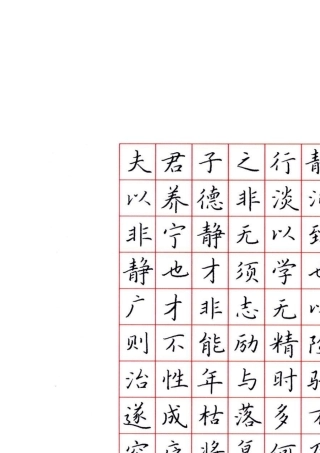 夫君子之行
以养德非淡
非宁静无以
静也才须学
广才非志无
则不能励精
治性年与时
遂成枯落多
将复何